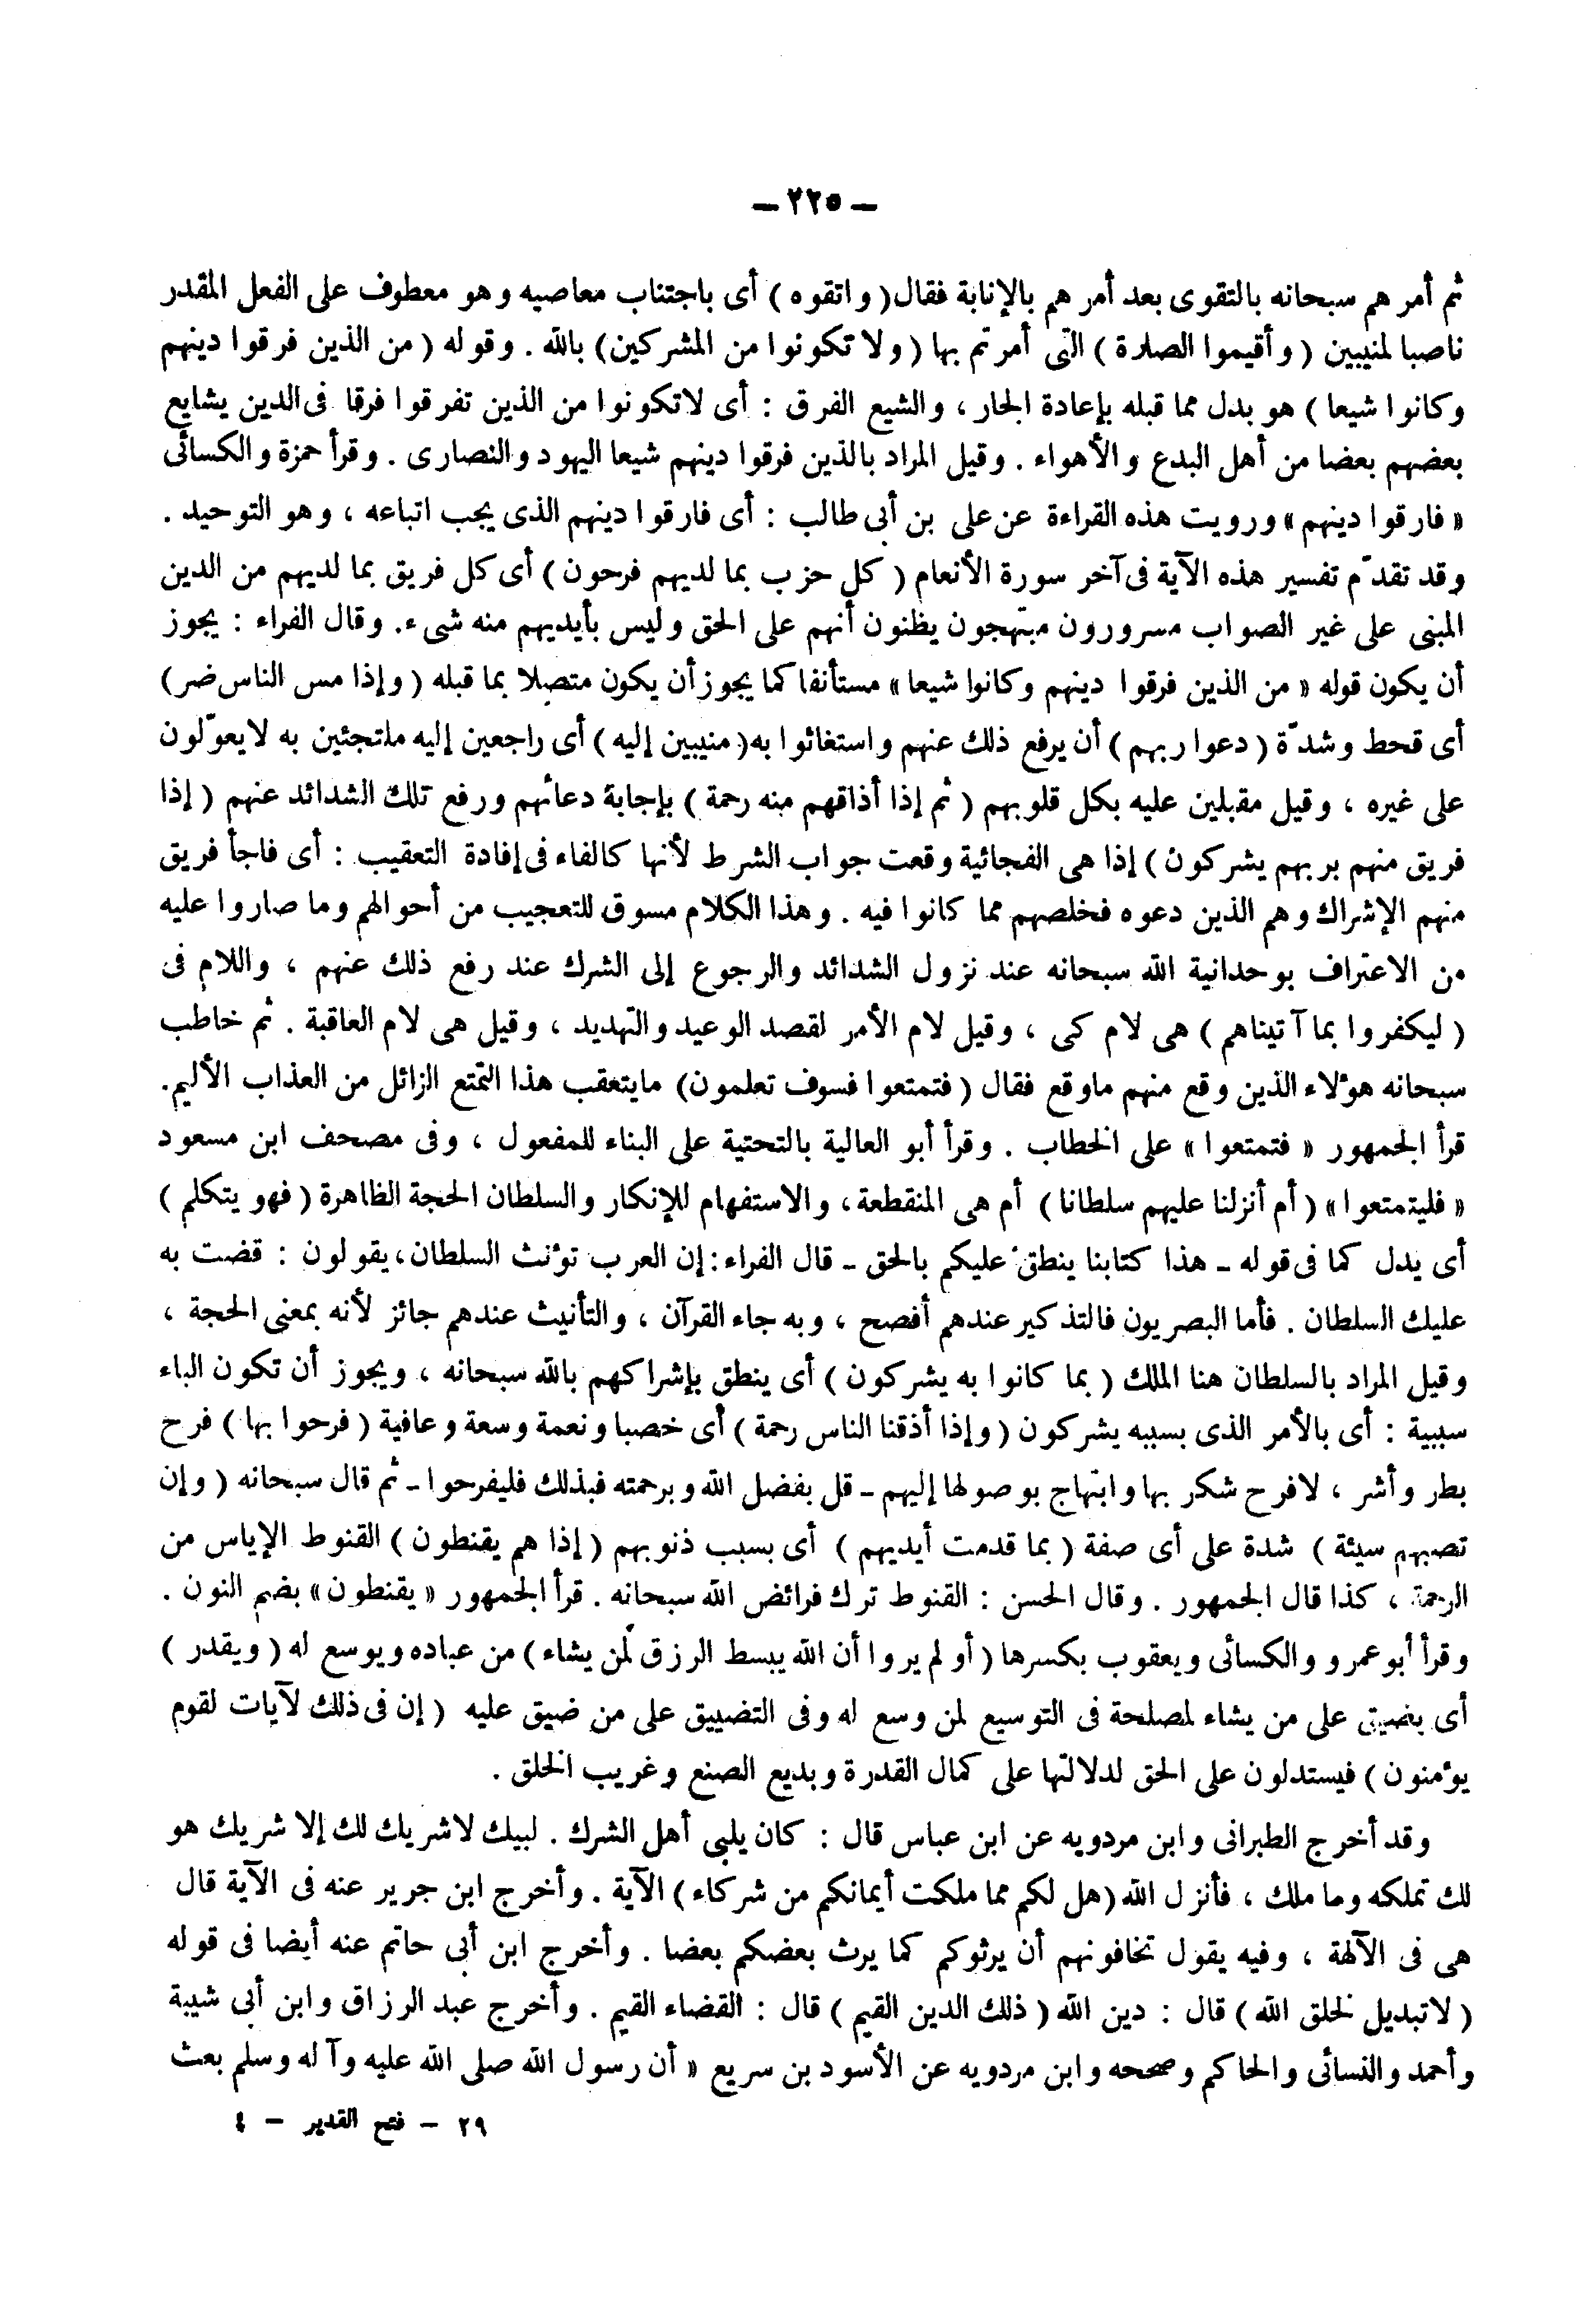 — ٢٢٥ —
ثم أمرهم سبحانه بالتقوى بعد أمرهم بالإنابة فقال ( واتقوه ) أى باجتناب معاصيه وهو معطوف على الفعل المقدر
ناصبا لمنيبين ( وأقيموا الصلاة ) التى أمرتم بها ( ولا تكونوا من المشركين ) بالله . وقوله ( من الذين فرقوا دينهم
وكانوا شيعا ) هو بدل مما قبله بإعادة الجار ، والشيع الفرق : أى لاتكونوا من الذين تفرقوا فرقا فى الدين يشايع
بعضهم بعضا من أهل البدع والأهواء . وقيل المراد بالذين فرقوا دينهم شيعا اليهود والنصارى . وقرأ حمزة والكسائى
« فارقوا دينهم » ورويت هذه القراءة عن على بن أبى طالب : أى فارقوا دينهم الذى يجب اتباعه ، وهو التوحيد .
وقد تقدّم تفسير هذه الآية فى آخر سورة الأنعام ( كل حزب بما لديهم فرحون ) أى كل فريق بما لديهم من الدين
المبنى على غير الصواب مسرورون مبتهجون يظنون أنهم على الحق وليس بأيديهم منه شىء. وقال الفراء : يجوز
أن يكون قوله « من الذين فرقوا دينهم وكانوا شيعا » مستأنفا كما يجوز أن يكون متصلا بما قبله ( وإذا مس الناس ضر )
أى قحط وشدّة ( دعوا ربهم ) أن يرفع ذلك عنهم واستغاثوا به ( منيبين إليه ) أى راجعين إليه ملتجئين به لايعوّلون
على غيره ، وقيل مقبلين عليه بكل قلوبهم ( ثم إذا أذاقهم منه رحمة ) بإجابة دعائهم ورفع تلك الشدائد عنهم ( إذا
فريق منهم بربهم يشركون ) إذا هى الفجائية وقعت جواب الشرط لأنها كالفاء فى إفادة التعقيب : أى فاجأ فريق
منهم الإشراك وهم الذين دعوه فخلصهم مما كانوا فيه . وهذا الكلام مسوق للتعجيب من أحوالهم وما صاروا عليه
من الاعتراف بوحدانية الله سبحانه عند نزول الشدائد والرجوع إلى الشرك عند رفع ذلك عنهم ، واللام فى
( ليكفروا بما آتيناهم ) هى لام كى ، وقيل لام الأمر لقصد الوعيد والتهديد ، وقيل هى لام العاقبة . ثم خاطب
سبحانه هؤلاء الذين وقع منهم ماوقع فقال ( فتمتعوا فسوف تعلمون ) مايتعقب هذا التمتع الزائل من العذاب الأليم.
قرأ الجمهور « فتمتعوا » على الخطاب . وقرأ أبو العالية بالتحتية على البناء للمفعول ، وفى مصحف ابن مسعود
« فليتمتعوا » ( أم أنزلنا عليهم سلطانا ) أم هى المنقطعة ، والاستفهام للإنكار والسلطان الحجة الظاهرة ( فهو يتكلم )
أى يدل كما فى قوله - هذا كتابنا ينطق عليكم بالحق - قال الفراء : إن العرب تؤنث السلطان ، يقولون : قضت به
عليك السلطان . فأما البصريون فالتذكير عندهم أفصح ، وبه جاء القرآن ، والتأنيث عندهم جائز لأنه بمعنى الحجة ،
وقيل المراد بالسلطان هنا الملك ( بما كانوا به يشركون ) أى ينطق بإشراكهم بالله سبحانه ، ويجوز أن تكون الباء
سببية : أى بالأمر الذى بسببه يشركون ( وإذا أذقنا الناس رحمة ) أى خصبا ونعمة وسعة وعافية ( فرحوا بها ) فرح
بطر وأشر ، لافرح شكر بها وابتهاج بوصولها إليهم - قل بفضل الله وبرحمته فبذلك فليفرحوا - ثم قال سبحانه ( وإن
تصبهم سيئة ) شدة على أى صفة ( بما قدمت أيديهم ) أى بسبب ذنوبهم ( إذا هم يقنطون ) القنوط الإياس من
الرحمة ، كذا قال الجمهور . وقال الحسن : القنوط ترك فرائض الله سبحانه . قرأ الجمهور « يقنطون » بضم النون .
وقرأ أبو عمرو والكسائى ويعقوب بكسرها ( أو لم يروا أن الله يبسط الرزق لمن يشاء ) من عباده ويوسع له ( ويقدر )
أى يضيق على من يشاء لمصلحة فى التوسيع لمن وسع له وفى التضييق على من ضيق عليه ( إن فى ذلك لآيات لقوم
يؤمنون ) فيستدلون على الحق لدلالتها على كمال القدرة وبديع الصنع وغريب الخلق .
وقد أخرج الطبرانى وابن مردويه عن ابن عباس قال : كان يلبى أهل الشرك . لبيك لاشريك لك إلا شريك هو
لك تملكه وما ملك ، فأنزل الله ( هل لكم مما ملكت أيمانكم من شركاء ) الآية . وأخرج ابن جرير عنه فى الآية قال
هى فى الآلهة ، وفيه يقول تخافونهم أن يرثوكم كما يرث بعضكم بعضا . وأخرج ابن أبى حاتم عنه أيضا فى قوله
( لاتبديل لخلق الله ) قال : دين الله ( ذلك الدين القيم ) قال : القضاء القيم . وأخرج عبد الرزاق وابن أبى شيبة
وأحمد والنسائى والحاكم وصححه وابن مردويه عن الأسود بن سريع « أن رسول الله صلى الله عليه وآله وسلم بعث
٢٩ — فتح القدير — ٤